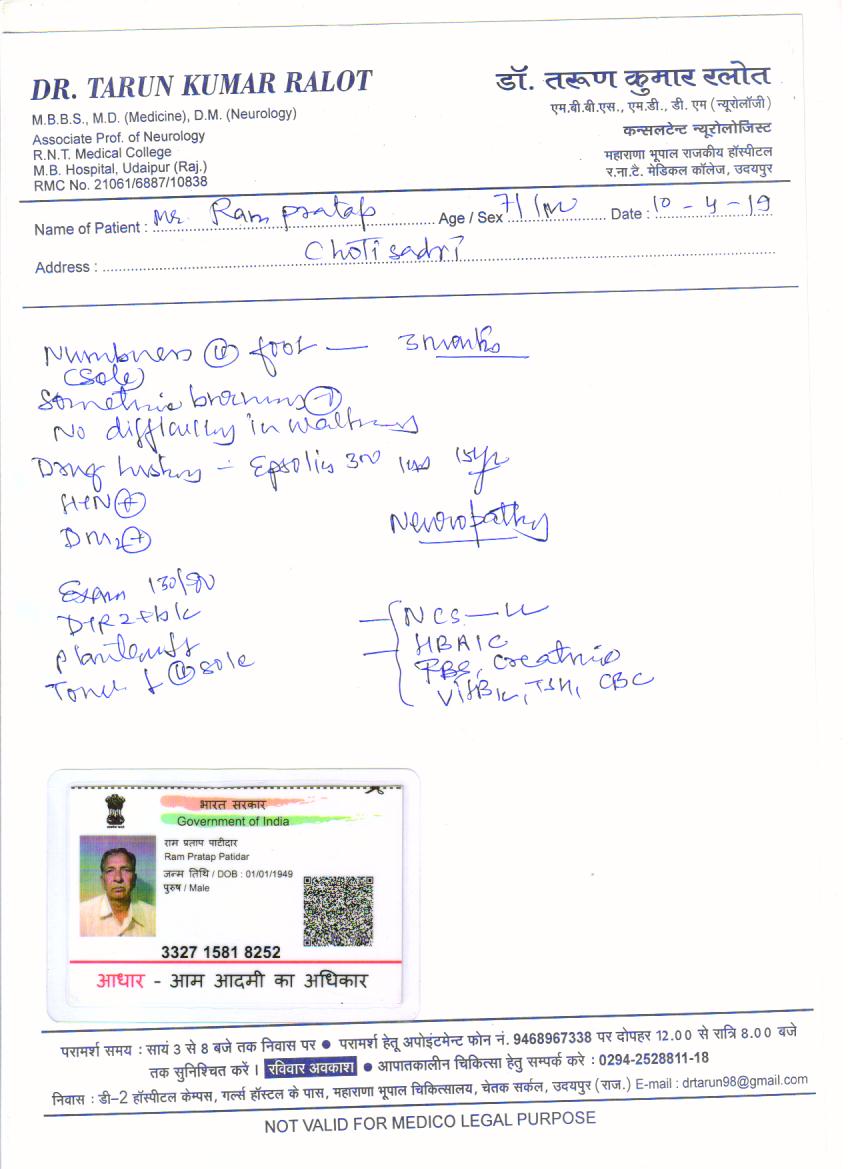 DR. TARUN KUMAR RALOT
M.B.B.S., M.D. (Medicine), D.M. (Neurology)
Associate Prof. of Neurology
R.N.T. Medical College
M.B. Hospital, Udaipur (Raj.)
RMC No. 21061/6887/10838
डॉ. तरूण कुमार रलोत
एम.बी.बी.एस., एम.डी., डी. एम (न्यूरोलॉजी)
कन्सलटेन्ट न्यूरोलोजिस्ट
महाराणा भूपाल राजकीय हॉस्पीटल
र.ना.टै. मेडिकल कॉलेज, उदयपुर
Name of Patient : Mr. Ram pratap Age / Sex 71/M Date : 10-4-19
Address : Choti sadri
Numbness foot — 3 months
(Sole)
No difficulty in walking
Drug history - 300 15yr
HTN +
DM2 +
Neuropathy
Exam 130/80
sole
NCS — LL
HBA1C
RBS, Creatnine
VitB12, TSH, CBC
भारत सरकार
Government of India
राम प्रताप पाटीदार
Ram Pratap Patidar
जन्म तिथि / DOB : 01/01/1949
पुरुष / Male
3327 1581 8252
आधार - आम आदमी का अधिकार
परामर्श समय : सायं 3 से 8 बजे तक निवास पर ● परामर्श हेतू अपोइंटमेन्ट फोन नं. 9468967338 पर दोपहर 12.00 से रात्रि 8.00 बजे
तक सुनिश्चित करें । रविवार अवकाश ● आपातकालीन चिकित्सा हेतु सम्पर्क करे : 0294-2528811-18
निवास : डी-2 हॉस्पीटल केम्पस, गर्ल्स हॉस्टल के पास, महाराणा भूपाल चिकित्सालय, चेतक सर्कल, उदयपुर (राज.) E-mail : drtarun98@gmail.com
NOT VALID FOR MEDICO LEGAL PURPOSE